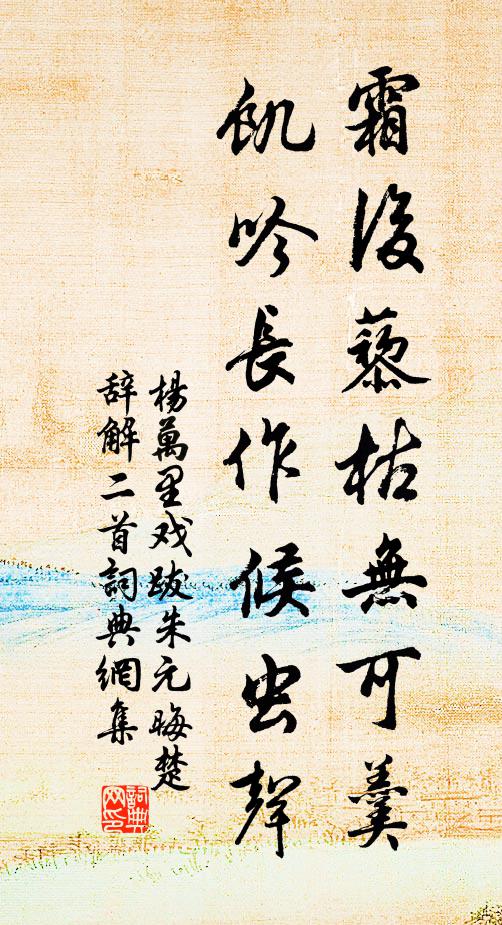 霜後藜枯無可羹
飢吟長作候虫聲
楊萬里戏跋朱元晦楚
辞解二首詞典網集
詞典
网印